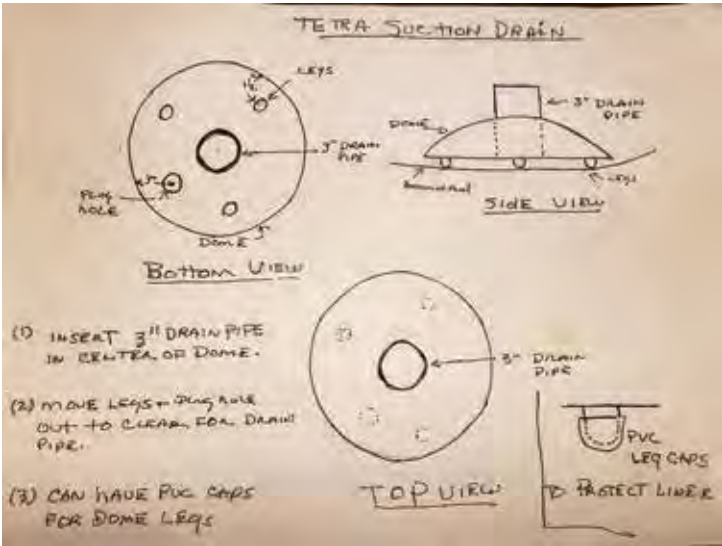 TETRA SUCTION DRAIN
LEGS
3" DRAIN
PIPE
PLUG
HOLE
DOME
Bottom View
DOME
3" DRAIN
PIPE
LEGS
SIDE VIEW
(1) INSERT 3" DRAIN PIPE
IN CENTER OF DOME.
(2) MOVE LEGS + PLUG HOLE
OUT TO CLEAR FOR DRAIN
PIPE.
(3) CAN HAVE PVC CAPS
FOR DOME LEGS
3" DRAIN
PIPE
TOP VIEW
PVC
LEG CAPS
TO PROTECT LINER